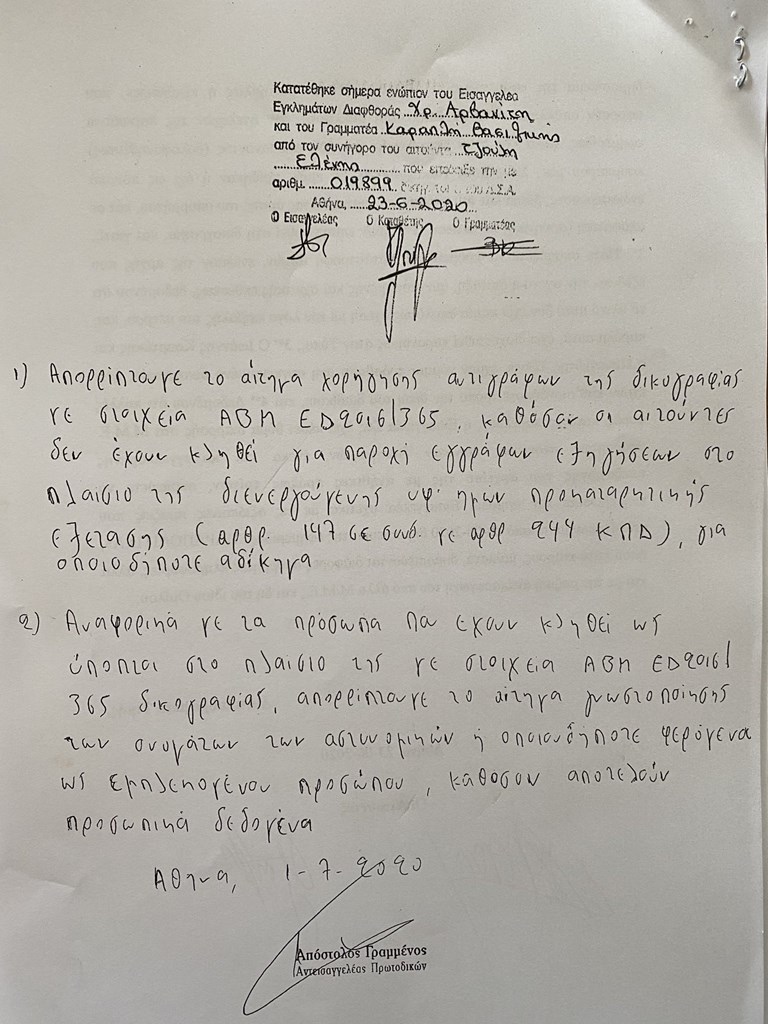 Κατατέθηκε σήμερα ενώπιον του Εισαγγελέα
Εγκλημάτων Διαφθοράς ...Χρ. Αρβανίτη
και του Γραμματέα .Καραπλή Βασιλικής
από τον συνήγορο του αιτούντα ..Τζούλη
......Ελένης............ που επέδειξε την με
αριθμ. ......019899.. Δ.Σ.Α.
Αθήνα,.....23-6-2020...
Ο Εισαγγελέας Ο Καταθέτης Ο Γραμματέας
1) Απορρίπτουμε το αίτημα χορήγησης αντιγράφων της δικογραφίας
με στοιχεία ΑΒΜ ΕΔ2016/365, καθόσον οι αιτούντες
δεν έχουν κληθεί για παροχή εγγράφων εξηγήσεων στο
πλαίσιο της διενεργούμενης υφ' ημων προκαταρκτικής
εξέτασης (αρθρ. 147 σε συνδ. με αρθρ 244 ΚΠΔ), για
οποιοδήποτε αδίκημα
2) Αναφορικά με τα πρόσωπα που έχουν κληθεί ως
ύποπτοι στο πλαίσιο της με στοιχεία ΑΒΜ ΕΔ2016/
365 δικογραφίας, απορρίπτουμε το αίτημα γνωστοποίησης
των ονομάτων των αστυνομικών ή οποιουδήποτε φερόμενα
ως εμπλεκομένου προσώπου, κάθοσον αποτελούν
προσωπικά δεδομένα
Αθηνα, 1-7-2020
Απόστολος Γραμμένος
Αντεισαγγελέας Πρωτοδικών